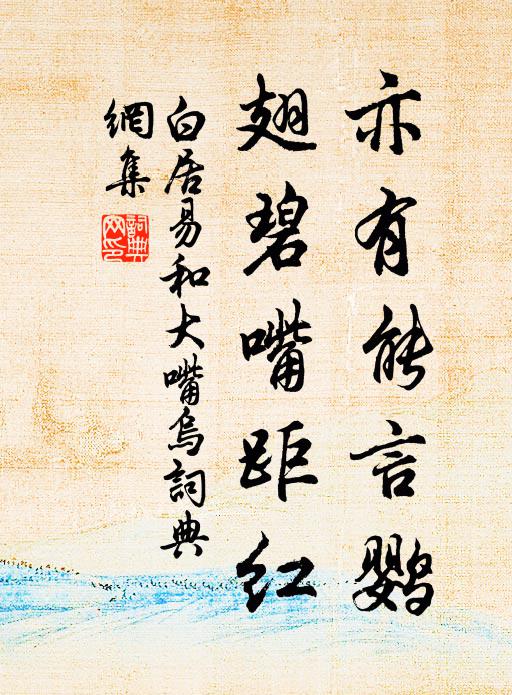 亦有能言鹦
翅碧嘴距红
白居易和大嘴乌词典
網集
詞典
网印